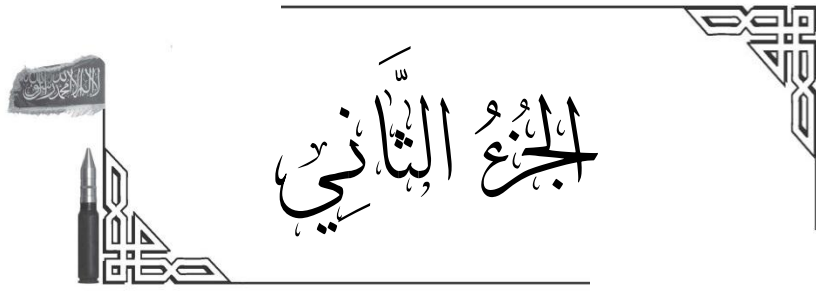 لا إله إلا الله محمد رسول الله
الجُزءُ الثَّانِي